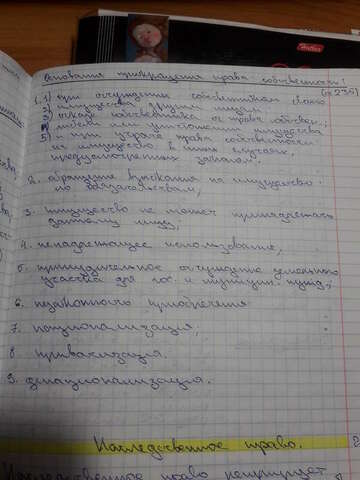 Основания прекращения права собственности:
(ст 235)
1. 1) при отчуждении собственником своего
2) имущества другим лицам;
3) отказе собственника от права собствен.;
4) гибели или уничтожении имущества
5) и при утрате права собственности
на имущество в иных случаях,
предусмотренных законом.
2. обращение взыскания на имущество
по обязательствам;
3. имущество не может принадлежать
данному лицу;
4. ненадлежащее использование;
5. принудительное отчуждение земельного
участка для гос. и муницип. нужд;
6. незаконного приобретения
7. национализация;
8. приватизация.
9. денационализация.
Наследственное право.
Наследственное право регулирует